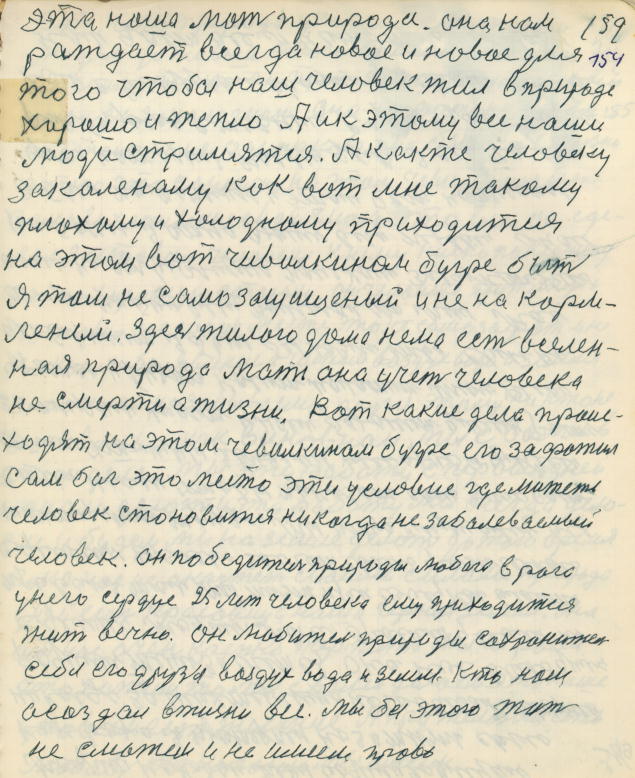 эта наша мать природа. она нам 159
раждает всегда новое и новое для 154
того чтобы наш человек жил в природе
хорошо и тепло А и к этому все наши
люди стримятся. А как те человеку
закаленаму как вот мне такому
плохому и холодному приходится
на этом вот чивилкинам бугре быт
я там не само защищеный и не на корм-
леный. Здес жилого дома нема ест вселен-
ная природа мать она учет человека
не смерти а жизни. Вот какие дела проис-
ходят на этом чевилкинам бугре его
сам бог это место эти условие где
человек становится никогда не забалеваемый
человек. он победител природы любога врага
у него сердце 25 лет человека ему приходится
жит вечно. он любител природы сохранител
себя его друзя воздух вода и земля. Кто нам
создал в жизни все. мы без этого жит
не сможем и не имеем право